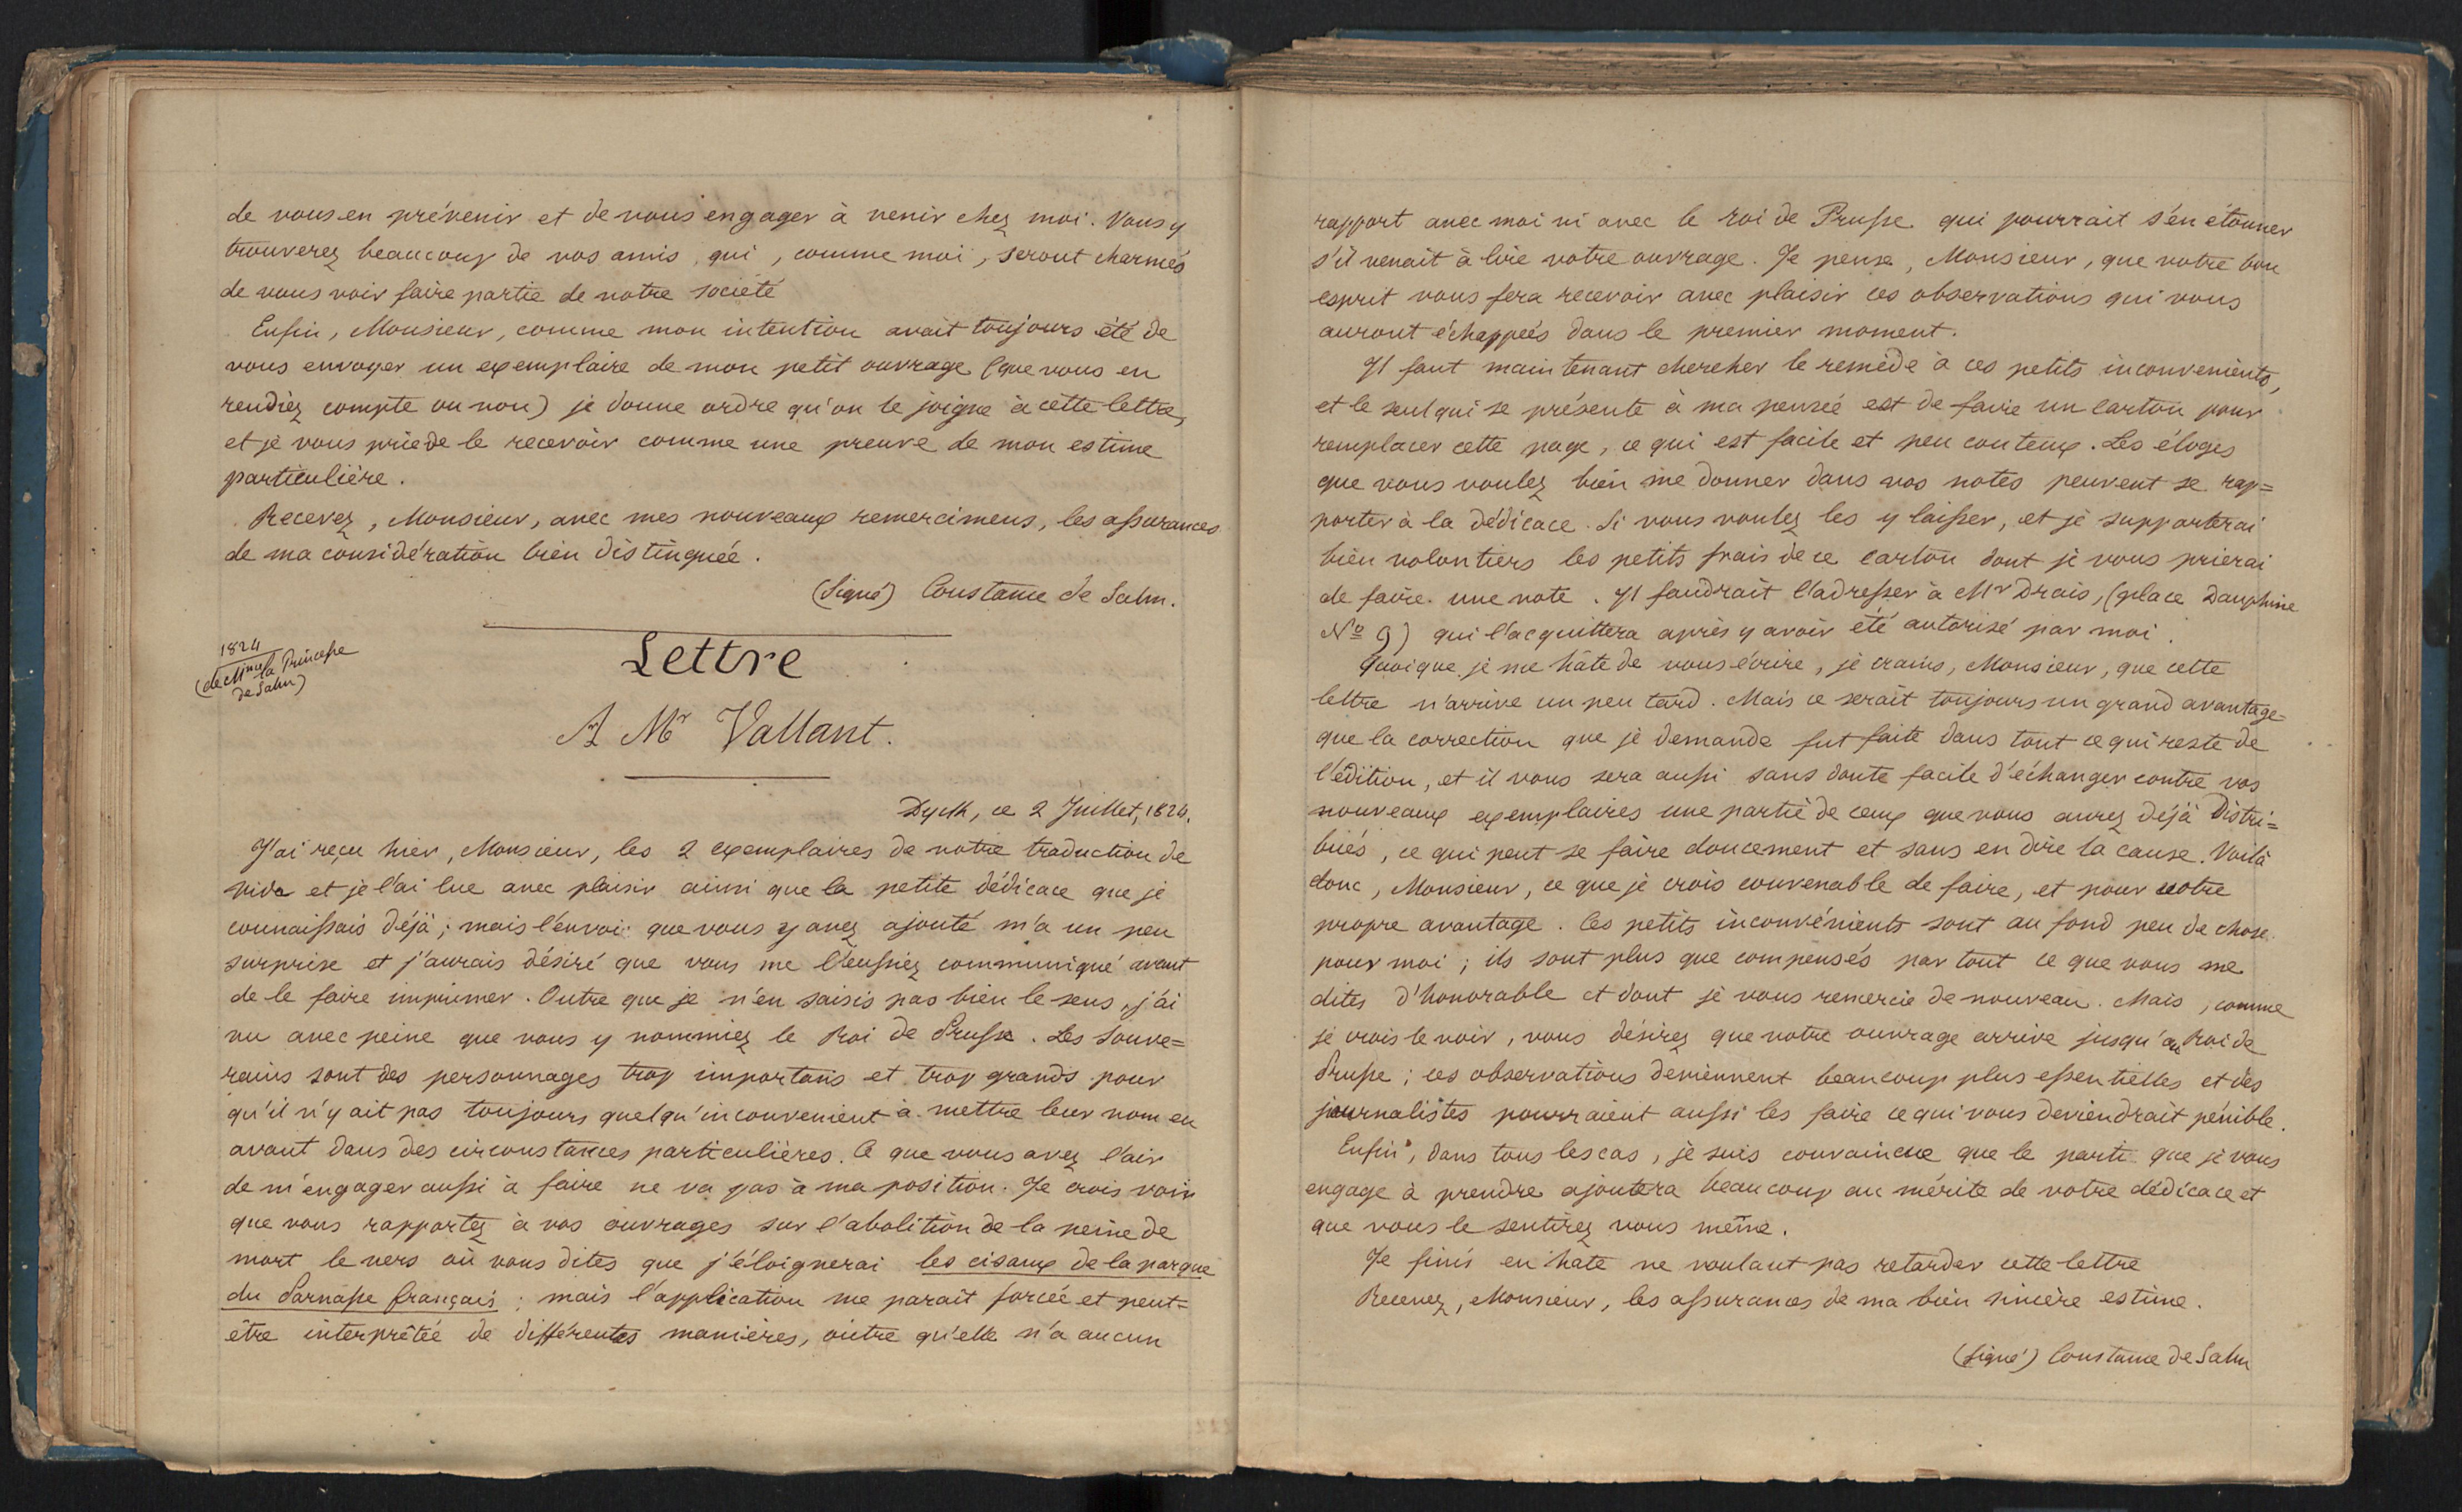 de vous en prévenir et de vous engager à venir chez moi. Vous y
trouverez beaucoup de vos amis qui, comme moi, seront charmés
de vous voir faire partie de notre société
Enfin, Monsieur, comme mon intention avait toujours été de
vous envoyer un exemplaire de mon petit ouvrage (que vous en
rendiez compte ou non) je donne ordre qu'on le joigne à cette lettre,
et je vous prie de le recevoir comme une preuve de mon estime
particulière.
Recevez, Monsieur, avec mes nouveaux remercimens, les assurances
de ma considération bien distinguée.
(Signé) Constance de Salm.
1824
(de Mme la Princesse
de Salm)
Lettre
A Mr Vallant.
Dyck, ce 2 Juillet, 1824.
J'ai reçu hier, Monsieur, les 2 exemplaires de votre traduction de
Vida et je l'ai lue avec plaisir ainsi que la petite dédicace que je
connaissais déjà; mais l'envoi que vous y avez ajouté m'a un peu
surprise et j'aurais désiré que vous me l'eussiez communiqué avant
de le faire imprimer. Outre que je n'en saisis pas bien le sens, j'ai
vu avec peine que vous y nommiez le Roi de Prusse. Les Souve=
rains sont des personnages trop importans et trop grands pour
qu'il n'y ait pas toujours quelqu'inconvenient à mettre leur nom en
avant dans des circonstances particulières. Ce que vous avez l'air
de m'engager aussi à faire ne va pas à ma position. Je crois voir
que vous rapportez à vos ouvrages sur l'abolition de la peine de
mort le vers où vous dites que j'éloignerai les cisaux de la parque
du Parnasse français; mais l'application me parait forcée et peut=
être interprêtée de différentes manières, outre qu'elle n'a aucun
rapport avec moi ni avec le roi de Prusse qui pourrait s'en étonner
s'il venait à lire votre ouvrage. Je pense, Monsieur, que votre bon
esprit vous fera recevoir avec plaisir ces observations qui vous
auront échappées dans le premier moment.
Il faut maintenant chercher le remède à ces petits inconvenients,
et le seul qui se présente à ma pensée est de faire un carton pour
remplacer cette page, ce qui est facile et peu couteux. Les éloges
que vous voulez bien me donner dans vos notes peuvent se rap=
porter à la dédicace. Si vous voulez les y laisser, et je supporterai
bien volontiers les petits frais de ce carton dont je vous prierai
de faire une note. Il faudrait l'adresser à Mr Drais, (place Dauphine
No 9) qui l'acquittera après y avoir été autorisé par moi.
Quoique je me hâte de vous écrire, je crains, Monsieur, que cette
lettre n'arrive un peu tard. Mais ce serait toujours un grand avantage
que la correction que je demande fut faite dans tout ce qui reste de
l'édition, et il vous sera aussi sans doute facile d'échanger contre vos
nouveaux exemplaires une partie de ceux que vous aurez déjà distri=
bués, ce qui peut se faire doucement et sans en dire la cause. Voilà
donc, Monsieur, ce que je crois convenable de faire, et pour votre
propre avantage. Ces petits inconvénients sont au fond peu de chose
pour moi; ils sont plus que compensés par tout ce que vous me
dites d'honorable et dont je vous remercie de nouveau. Mais, comme
je crois le voir, vous désirez que votre ouvrage arrive jusqu'au Roi de
Prusse; ces observations deviennent beaucoup plus essentielles et des
journalistes pourraient aussi les faire ce qui vous deviendrait pénible.
Enfin, dans tous les cas, je suis convaincue que le parti que je vous
engage à prendre ajoutera beaucoup au mérite de votre dédicace et
que vous le sentirez vous même.
Je finis en hâte ne voulant pas retarder cette lettre
Recevez, Monsieur, les assurances de ma bien sincère estime.
(Signé) Constance de Salm